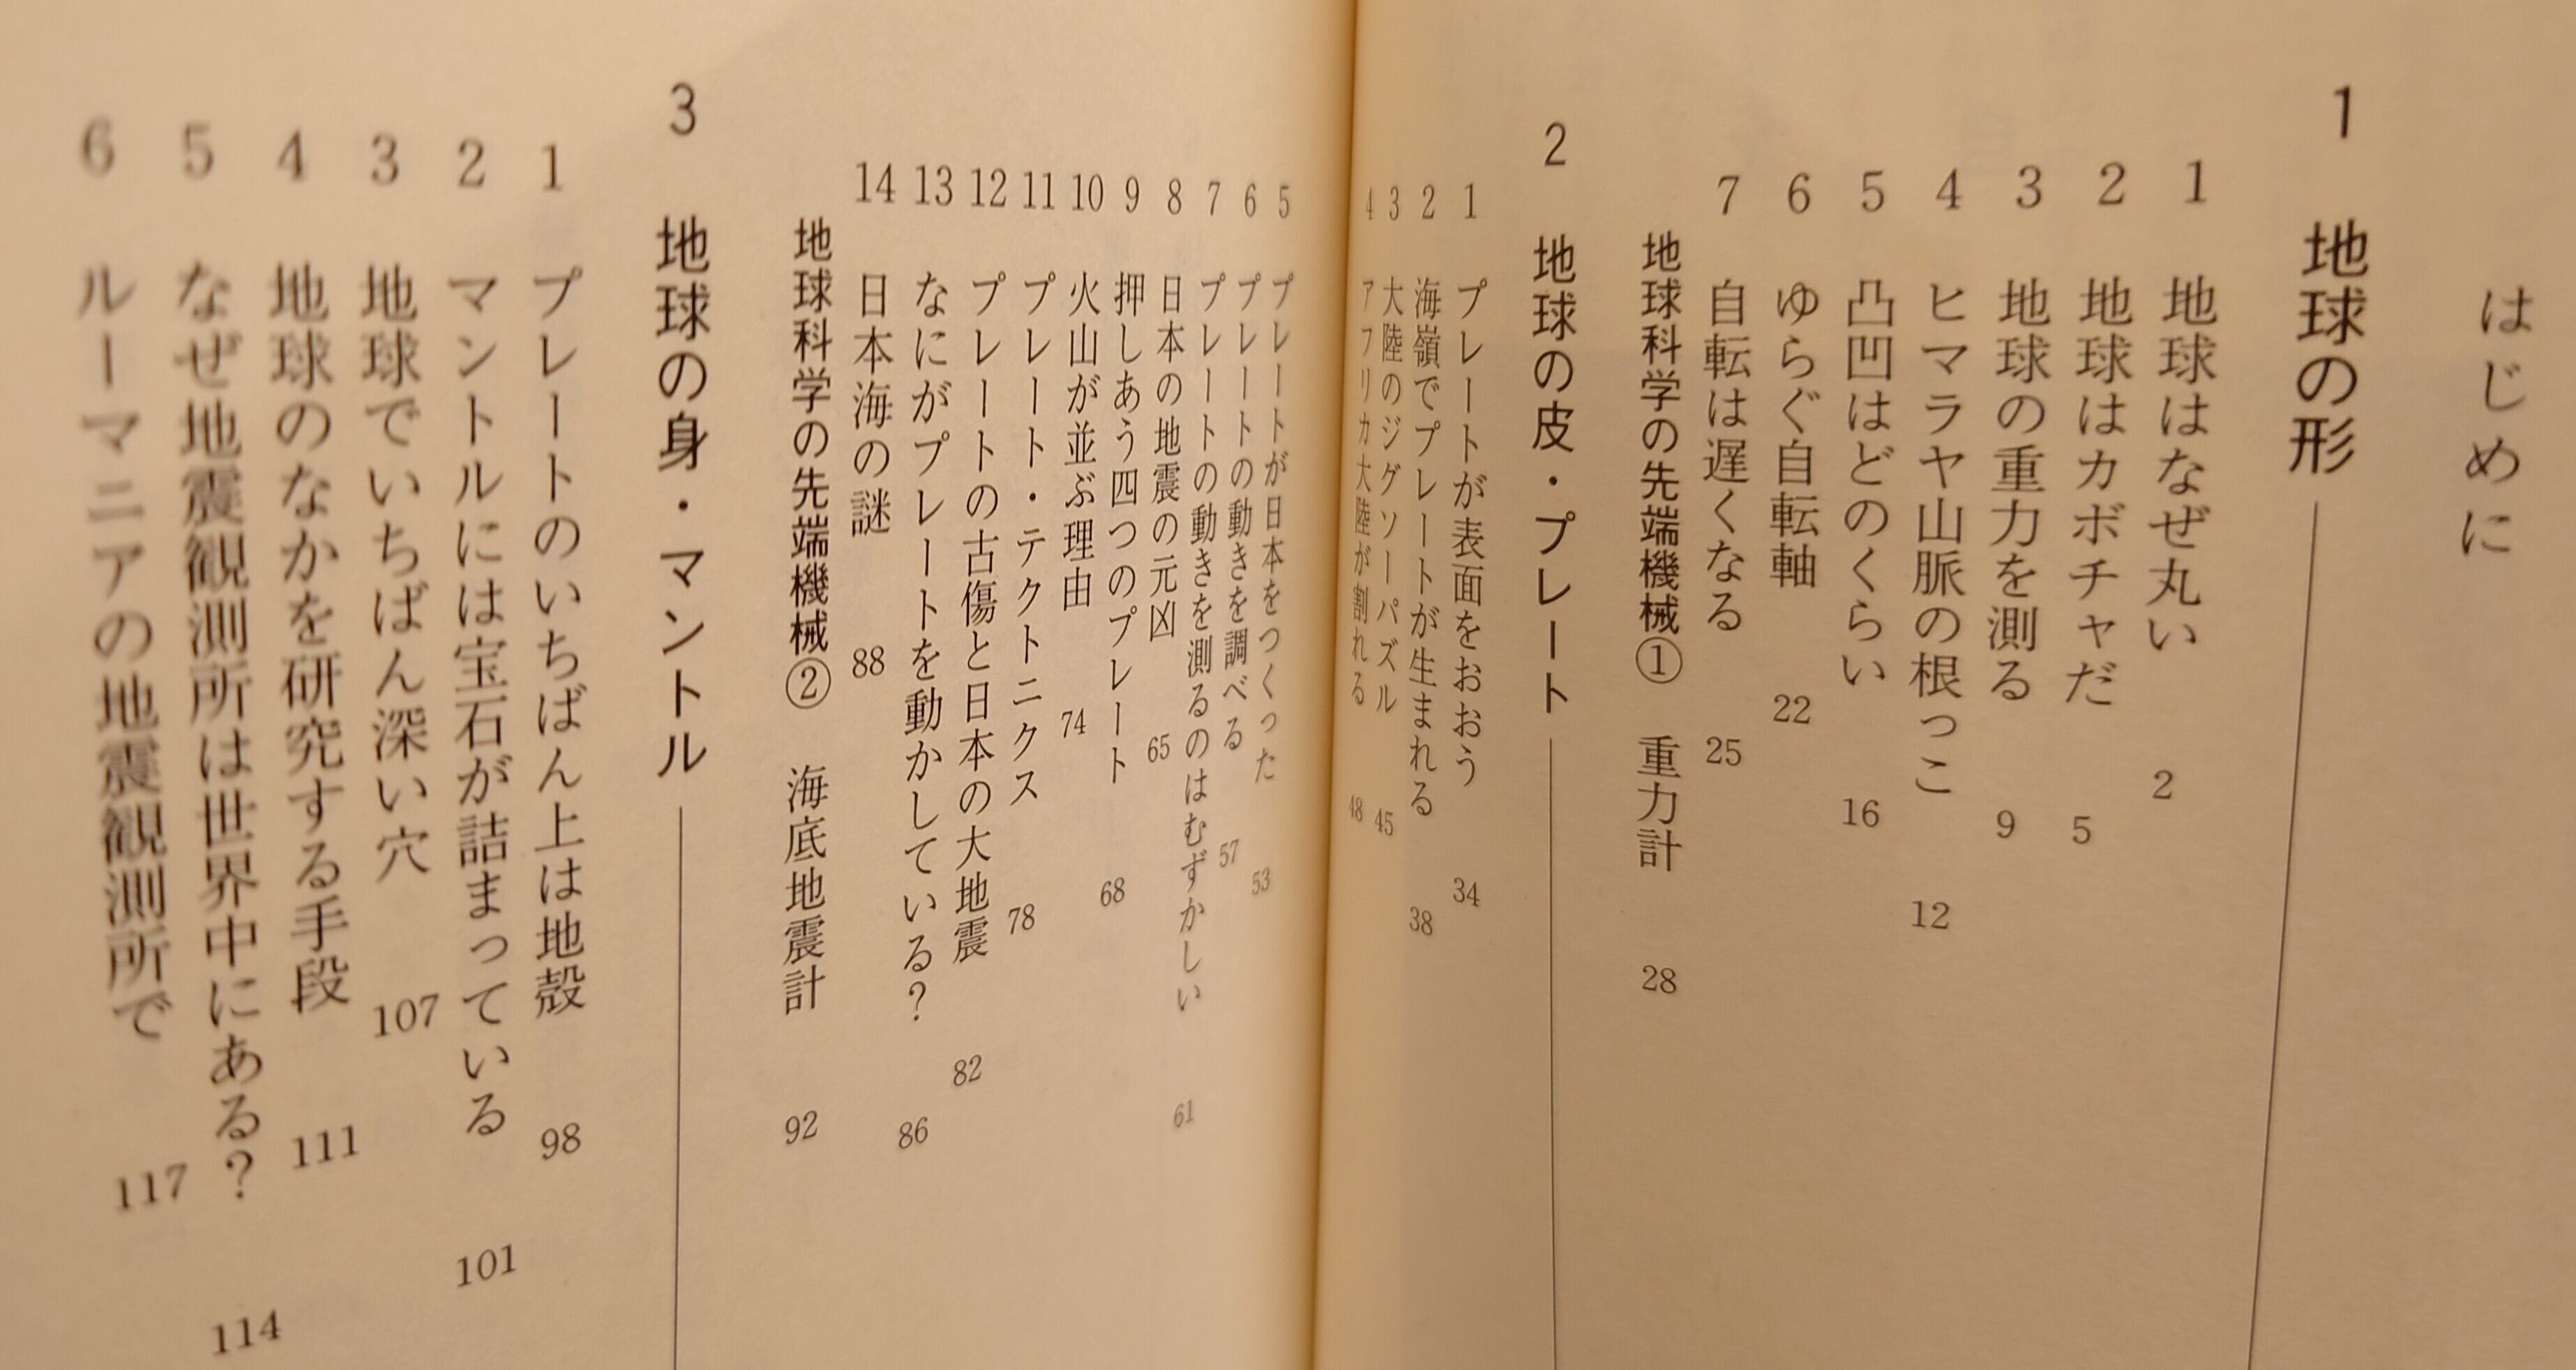 はじめに
1 地球の形
1 地球はなぜ丸い 2
2 地球はカボチャだ 5
3 地球の重力を測る 9
4 ヒマラヤ山脈の根っこ 12
5 凸凹はどのくらい 16
6 ゆらぐ自転軸 22
7 自転は遅くなる 25
地球科学の先端機械① 重力計 28
2 地球の皮・プレート
1 プレートが表面をおおう 34
2 海嶺でプレートが生まれる 38
3 大陸のジグソーパズル 45
4 アフリカ大陸が割れる 48
5 プレートが日本をつくった 53
6 プレートの動きを調べる 57
7 プレートの動きを測るのはむずかしい 61
8 日本の地震の元凶 65
9 押しあう四つのプレート 68
10 火山が並ぶ理由 74
11 プレート・テクトニクス 78
12 プレートの古傷と日本の大地震 82
13 なにがプレートを動かしている? 86
14 日本海の謎 88
地球科学の先端機械② 海底地震計 92
3 地球の身・マントル
1 プレートのいちばん上は地殻 98
2 マントルには宝石が詰まっている 101
3 地球でいちばん深い穴 107
4 地球のなかを研究する手段 111
5 なぜ地震観測所は世界中にある? 114
6 ルーマニアの地震観測所で 117